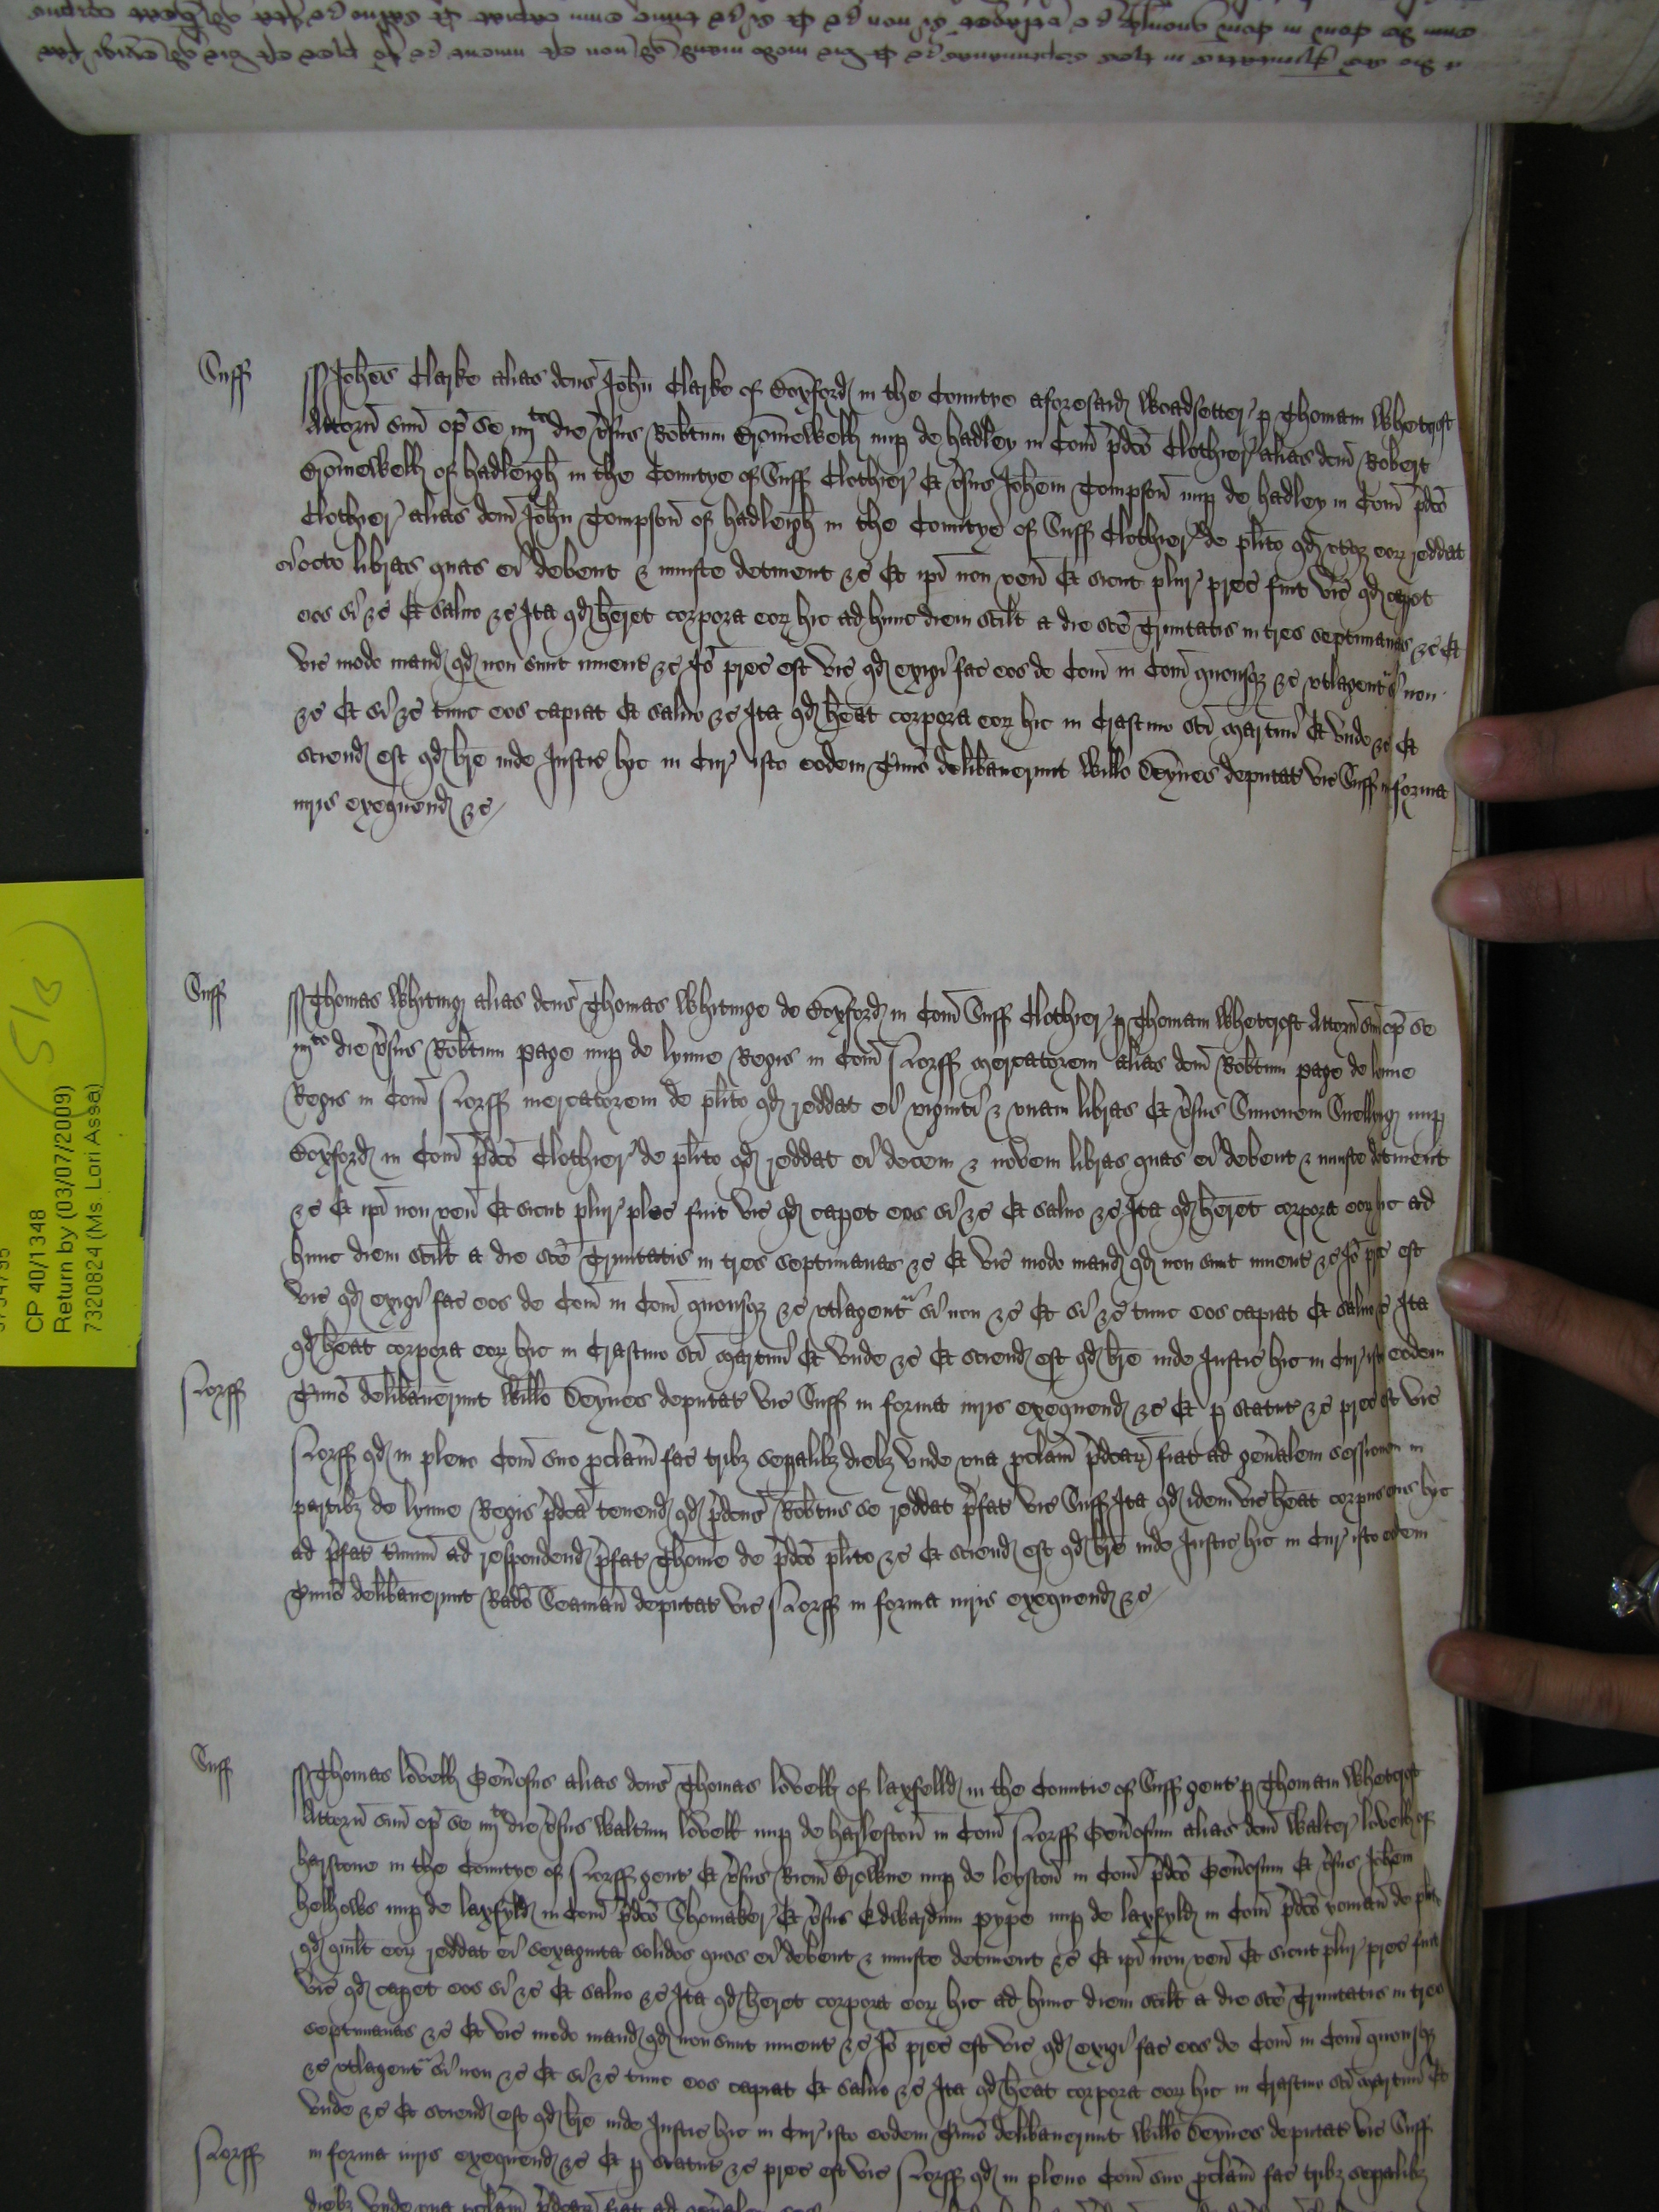 Suff Joh̄es Clarke alias dc̄us John̄ Clarke of Boxford in the Countye aforesaid Woadsetter p Thomam Whetcroft
Attorn̄ suū op̄ se iiijto die v̄sus Rob̄tum Cromewell nup de hadley in Com̄ p̄dc̄o Clothier alias dc̄m Robert
Cromewell of hadleigh in the Countye of Suff Clothier Et v̄sus Joh̄em Tompson̄ nup de hadley in Com̄ p̄dc̄o
Clothier alias dc̄m John̄ Tompson̄ of hadleigh in the Countye of Suff Clothier de pl̄ito qd utq eoꝝ reddat
ei octo libras quas ei debent & iniuste detinent &c Et ip̄i non ven̄ Et sicut plur prec̄ fuit vic̄ qd caperet
eos si &c Et saluo &c Ita qd h̄eret corpora eoꝝ hic ad hunc diem scil̄t a die sc̄e Trinitatis in tres septimanas &c Et
vic̄ modo mand qd non sunt inuent &c Io̅ prec̄ est vic̄ qd exigi fac̄ eos de Com̄ in Com̄ quousq &c utlagent si non
&c Et si &c tunc eos capiat Et saluo &c Ita qd h̄eat corpora eoꝝ hic in Crastino sc̄i Martini Et unde &c Et
sciend est qd br̄e inde Justic̄ hic in Cur isto eodem t̄mio delib̄auerunt Will̄o Deynes deputat vic̄ Suff in forma
iuris exequend &c
Suff Thomas Whiting alias dc̄us Thomas Whitinge de Boxford in Com̄ Suff Clothier p Thomam Whetcroft Attorn̄ suū op̄ se
iiijto die v̄sus Rob̄tum Page nup de lynne Regis in Com̄ Norff Mercatorem alias dc̄m Rob̄tum page de lynne
Regis in Com̄ Norff mercatorem de pl̄ito qd reddat ei viginti & unam libras Et v̄sus Simonem Snelling nup
Boxford in Com̄ p̄dc̄o Clothier de pl̄ito qd reddat ei decem & novem libras quas ei debent & iniuste detinent
&c Et ip̄i non ven̄ Et sicut plur prec̄ fuit vic̄ qd caperet eos si &c Et saluo &c Ita qd h̄eret corpora eoꝝ hic ad
hunc diem scil̄t a die sc̄e Trinitatis in tres septimanas &c Et vic̄ modo mand qd non sunt inuent &c Io̅ prec̄ est
vic̄ qd exigi fac̄ eos de Com̄ in Com̄ quousq &c utlagent si non &c Et si &c tunc eos capiat Et saluo &c Ita
qd h̄eat corpora eoꝝ hic in Crastino sc̄i Martini Et unde &c Et sciend est qd br̄e inde Justic̄ hic in Cur isto eodem
Norff t̄mio delib̄auerunt Will̄o Deynes deputat vic̄ Suff in forma iuris exequend &c Et p statut &c prec̄ est vic̄
Norff qd in pleno Com̄ suo p̄clam̄ fac̄ tribꝫ sep̄alibꝫ diebꝫ unde una p̄clam̄ p̄dcaꝝ fiat ad gen̄alem sessionem in
partibꝫ de lynne Regis p̄dc̄a tenend qd p̄dc̄us Rob̄tus se reddat p̄fat vic̄ Suff Ita qd idem vic̄ h̄eat corpus eius hic
ad p̄fat t̄minū ad respondend p̄fat Thome de p̄dc̄o pl̄ito &c Et sciend est qd br̄e inde Justic̄ hic in Cur isto eodem
t̄mio delib̄auerunt Rad̄o Seaman̄ deputat vic̄ Norff in forma iuris exequend &c
Suff Thomas lovell Gen̄osus alias dc̄us Thomas lovell of laxfelld in the Countie of Suff gent p Thomam Whetcroft
Attorn̄ suū op̄ se iiijto die v̄sus Walt̄um lovell nup de harleston̄ in Com̄ Norff Gen̄osum alias dc̄m Walter lovell of
harstone in the Countye of Norff gent Et v̄sus Ric̄m Browne nup de leyston̄ in Com̄ p̄dc̄o Gen̄osum Et v̄sus Joh̄em
helhows nup de laxfyld in Com̄ p̄dc̄o Shomaker Et v̄sus Edwardum pype nup de laxfyld in Com̄ p̄dc̄o yoman̄ de pl̄ito
qd quil̄t eoꝝ reddat ei sexaginta solidos quos ei debent & iniuste detinent &c Et ip̄i non ven̄ Et sicut plur prec̄ fuit
vic̄ qd caperet eos si &c Et saluo &c Ita qd h̄eret corpora eoꝝ hic ad hunc diem scil̄t a die sc̄e Trinitatis in tres
septimanas &c Et vic̄ modo mand qd non sunt inuent &c Io̅ prec̄ est vic̄ qd exigi fac̄ eos de Com̄ in Com̄ quousq
&c utlagent si non &c Et si &c tunc eos capiat Et saluo &c Ita qd h̄eat corpora eoꝝ hic in Crastino sc̄i Martini Et
unde &c Et sciend est qd br̄e inde Justic̄ hic in Cur isto eodem t̄mio delib̄auerunt Will̄o Deynes deputat vic̄ Suff
Norff in forma iuris exequend &c Et p statut &c prec̄ est vic̄ Norff qd in pleno Com̄ suo p̄clam̄ fac̄ tribꝫ sep̄alibꝫ
diebꝫ unde una p̄clam̄ p̄dcaꝝ fiat ad gen̄alem
51B
CP 40/1348
Return by (03/07/2009)
7320824 (Ms. Lori Assa)